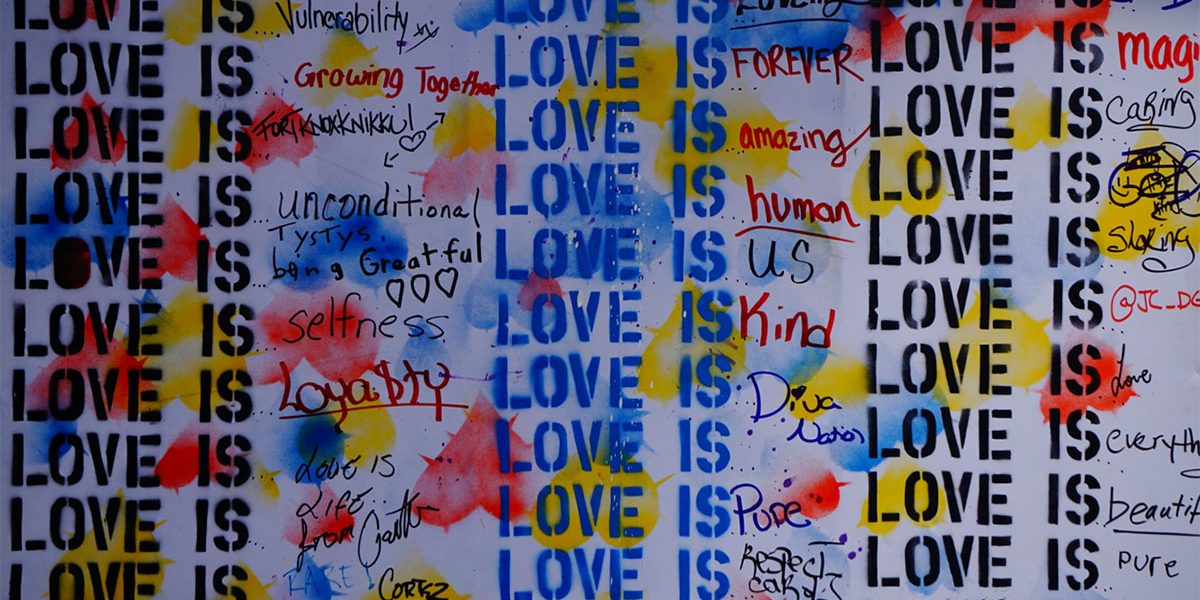 LOVE IS... Vulnerability
LOVE IS Growing Together
LOVE IS FORTKNOXKNIKKU!
LOVE IS... unconditional
TYSTYS.
LOVE IS being Greatful
LOVE IS selfness
LOVE IS Loya$ty
LOVE IS...
Love is
LOVE IS
LIFE
from
LOVE IS
RARE
CORTEZ
LOVE IS
LOVE IS FOREVER
LOVE IS amazing
LOVE IS... human
LOVE IS US
LOVE IS Kind
LOVE IS Diva
Nation
LOVE IS...
LOVE IS Pure
LOVE IS... RESPECT
LOVE IS
LOVE IS
LOVE IS CARING
LOVE IS
LOVE IS
LOVE IS @JC_DC
LOVE IS Love
LOVE IS everyth
LOVE IS beautif
LOVE IS... PURE